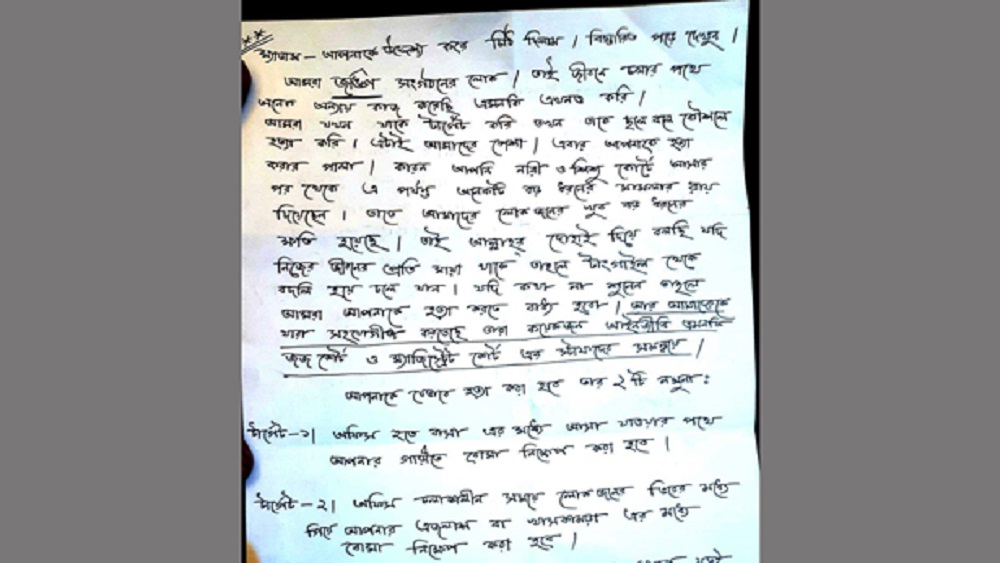 ** ম্যাডাম - আপনাকে উদ্দেশ্য করে চিঠি দিলাম। বিস্তারিত পরে দেখুন।
আমরা জঙ্গি সংগঠনের লোক। তাই জীবনে চলার পথে
অনেক অন্যায় কাজ করেছি এমনকি এখনও করি।
আমরা যখন যাকে টার্গেট করি তখন তাকে ছলে বলে কৌশলে
হত্যা করি। এটাই আমাদের পেশা। এবার আপনাকে হত্যা
করার পালা। কারন আপনি নারী ও শিশু কোর্টে আসার
পর থেকে এ পর্যন্ত অনেকটি বড় ধরনের মামলার রায়
দিয়েছেন। তাতে আমাদের লোকজনের খুব বড় ধরনের
ক্ষতি হয়েছে। তাই আল্লাহর দোহাই দিয়ে বলছি যদি
নিজের জীবনের প্রতি মায়া থাকে তাহলে টাংগাইল থেকে
বদলি হয়ে চলে যান। যদি কথা না শুনেন তাহলে
আমরা আপনাকে হত্যা করতে বাধ্য হবো। আর আমাদেরকে
যারা সহযোগীতা করতেছে তারা কয়েকজন আইনজীবি এমনকি
জজ কোর্ট ও ম্যাজিস্ট্রেট কোর্ট এর স্টাফদের সমন্বয়ে।
আপনাকে যেভাবে হত্যা করা হবে তার ২টি নমুনা:
টার্গেট-১। অফিস হতে বাসা এর মধ্যে আসা যাওয়ার পথে
আপনার গাড়ীতে বোমা নিক্ষেপ করা হবে।
টার্গেট-২। অফিস চলাকালীন সময়ে লোকজনের ভিতর মধ্যে
গিয়ে আপনার এজলাস বা খাসকামরা এর মধ্যে
বোমা নিক্ষেপ করা হবে।